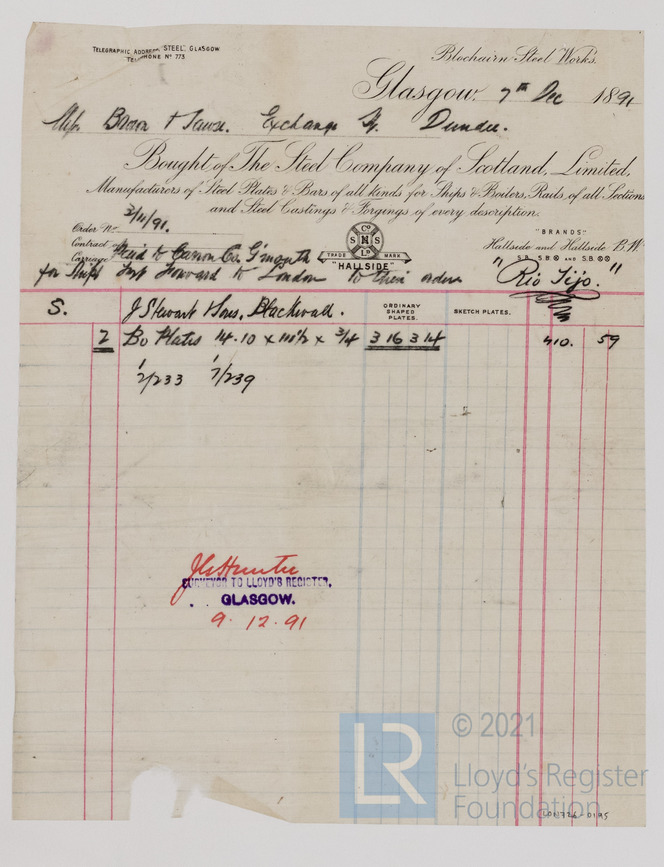 TELEGRAPHIC ADDRESS, "STEEL", GLASGOW
TELEPHONE Nº 773
Blochairn Steel Works.
Glasgow. 7th Dec 1891
Brown & Exchange Dundee.
Bought of The Steel Company of Scotland, Limited,
Manufacturers of Steel Plates & Bars of all kinds for Ships & Boilers, Rails of all Sections
and Steel Castings & Forgings of every description.
Order Nº 3/11/91.
Contract
Carriage Paid to Carron Co. G'mouth
for Ship forward to London to their order
S C⁰ S L⁰
TRADE MARK
"HALLSIDE"
"BRANDS"
Hallside and Hallside B.W.
S.B. S.B ⊗ AND S.B. ⊗⊗
"Rio Tijo."
S. J Stewart Sons, Blackwall.
ORDINARY SHAPED PLATES.
SKETCH PLATES.
2 Bo Plates 14.10 x 111½ x ¾ 3 16 3 14 410. 59
1/7233 1/7239
SURVEYOR TO LLOYD'S REGISTER,
GLASGOW.
9.12.91
LR
© 2021
Lloyd's Register
Foundation